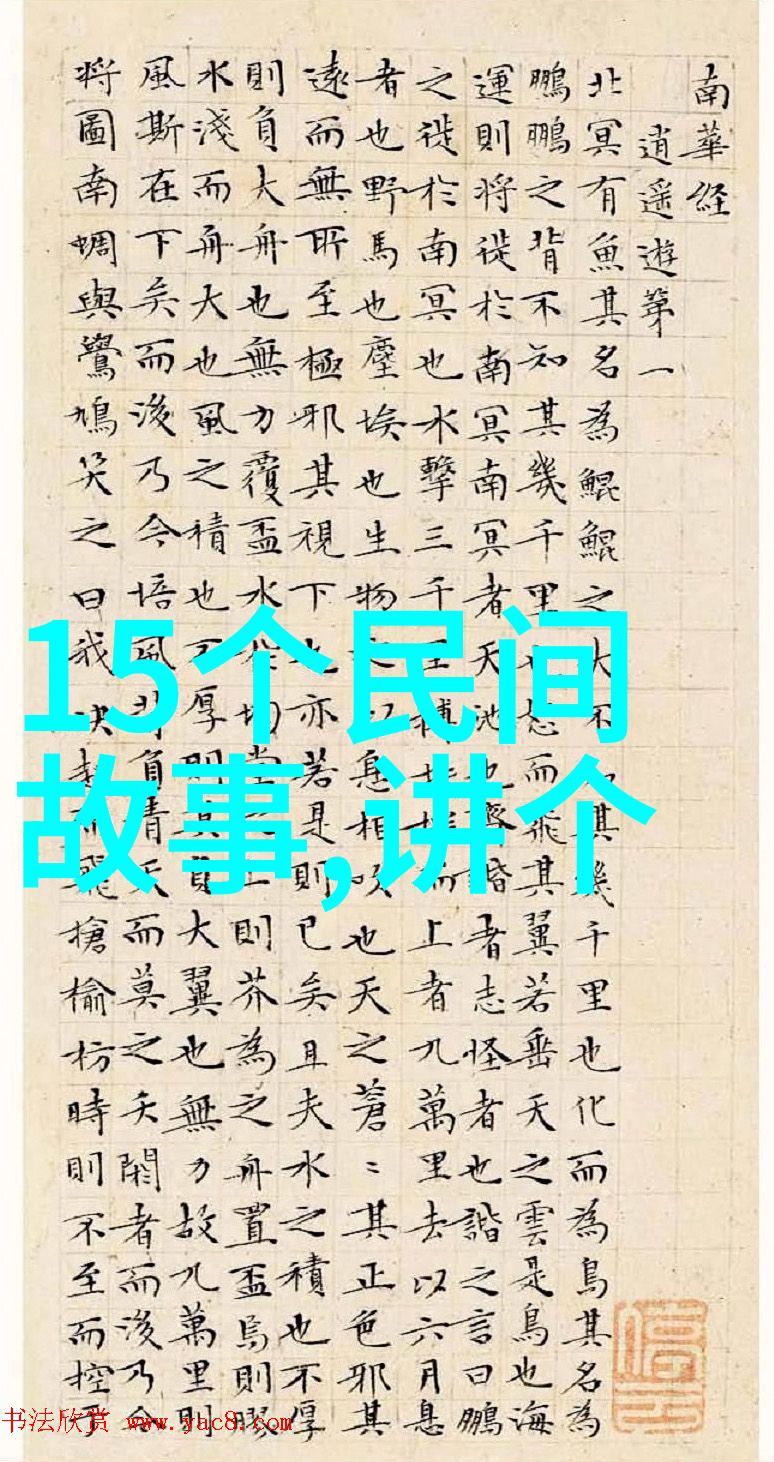 南華經
逍遥遊第一
北冥有魚其名為鯤鯤之大不其幾千里也化而為鳥其名為
鵬鵬之背不知其幾千里也怒而飛其翼若垂天之雲是鳥也海
運則將徙於南冥南冥者天池也齊諧者志怪者也諧之言曰鵬
之徙於南冥也水擊三千里摶扶搖而上者九萬里去以六月息
者也野馬也塵埃也生物之以息相吹也天之蒼〻其正色邪其
遠而無所至極邪其視下也亦若是則已矣且夫水之積也不厚
則負大舟也無力覆盃水於坳堂之上則芥為之舟置盃焉則膠
水淺而舟大也風之積也不厚則其負大翼也無力故九萬里則
風斯在下矣而後乃今培風背負青天而莫之夭閼者而後乃今
將圖南蜩與鷽鳩笑之曰我決起而飛搶榆枋時則不至而控於
15个民间
故事,讲个
停云
书法欣赏 www.yac8.com